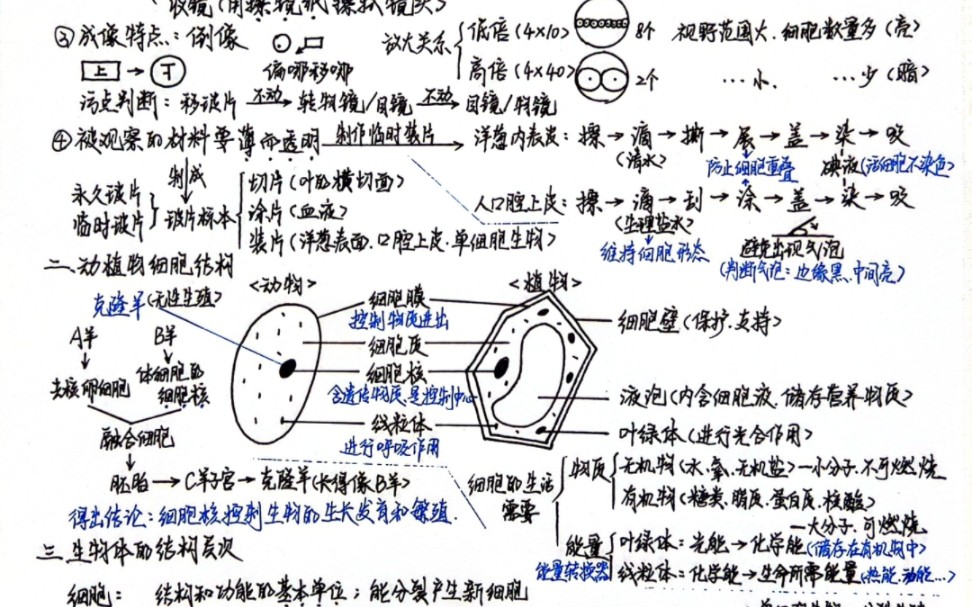 收镜(用擦镜纸擦拭镜头)
③成像特点：倒像
上 → 丅
偏哪移哪
放大关系
低倍(4×10) 8个 视野范围大.细胞数量多(亮)
高倍(4×40) 2个 …小. …少(暗)
污点判断：移玻片 不动→ 转物镜/目镜 不动→ 目镜/物镜
④被观察的材料要薄而透明 制作临时装片→ 洋葱内表皮：擦→滴→撕→展→盖→染→吸
(清水) 防止细胞重叠 碘液(活细胞不染色)
制成
永久玻片
临时玻片
玻片标本
切片(叶的横切面)
涂片(血液)
装片(洋葱表面.口腔上皮.单细胞生物)
人口腔上皮：擦→滴→刮→涂→盖→染→吸
(生理盐水)
维持细胞形态
避免出现气泡
(判断气泡：边缘黑.中间亮)
二.动植物细胞结构
克隆羊(无性生殖)
A羊 B羊
去核卵细胞 体细胞的
细胞核
融合细胞
胚胎→C羊子宫→克隆羊(长得像B羊)
得出结论：细胞核控制生物的生长发育和繁殖.
<动物> <植物>
细胞膜
控制物质进出
细胞质
细胞核
含遗传物质.是控制中心
线粒体
进行呼吸作用
细胞壁(保护.支持)
液泡(内含细胞液.储存营养物质)
叶绿体(进行光合作用)
细胞的生活
需要
物质
无机物(水.氧.无机盐)—小分子.不可燃烧
有机物(糖类.脂质.蛋白质.核酸)
—大分子.可燃烧
能量
能量转换器
叶绿体：光能→化学能(储存在有机物中)
线粒体：化学能→生命所需能量(热能.动能…)
三.生物体的结构层次
细胞： 结构和功能的基本单位；能分裂产生新细胞